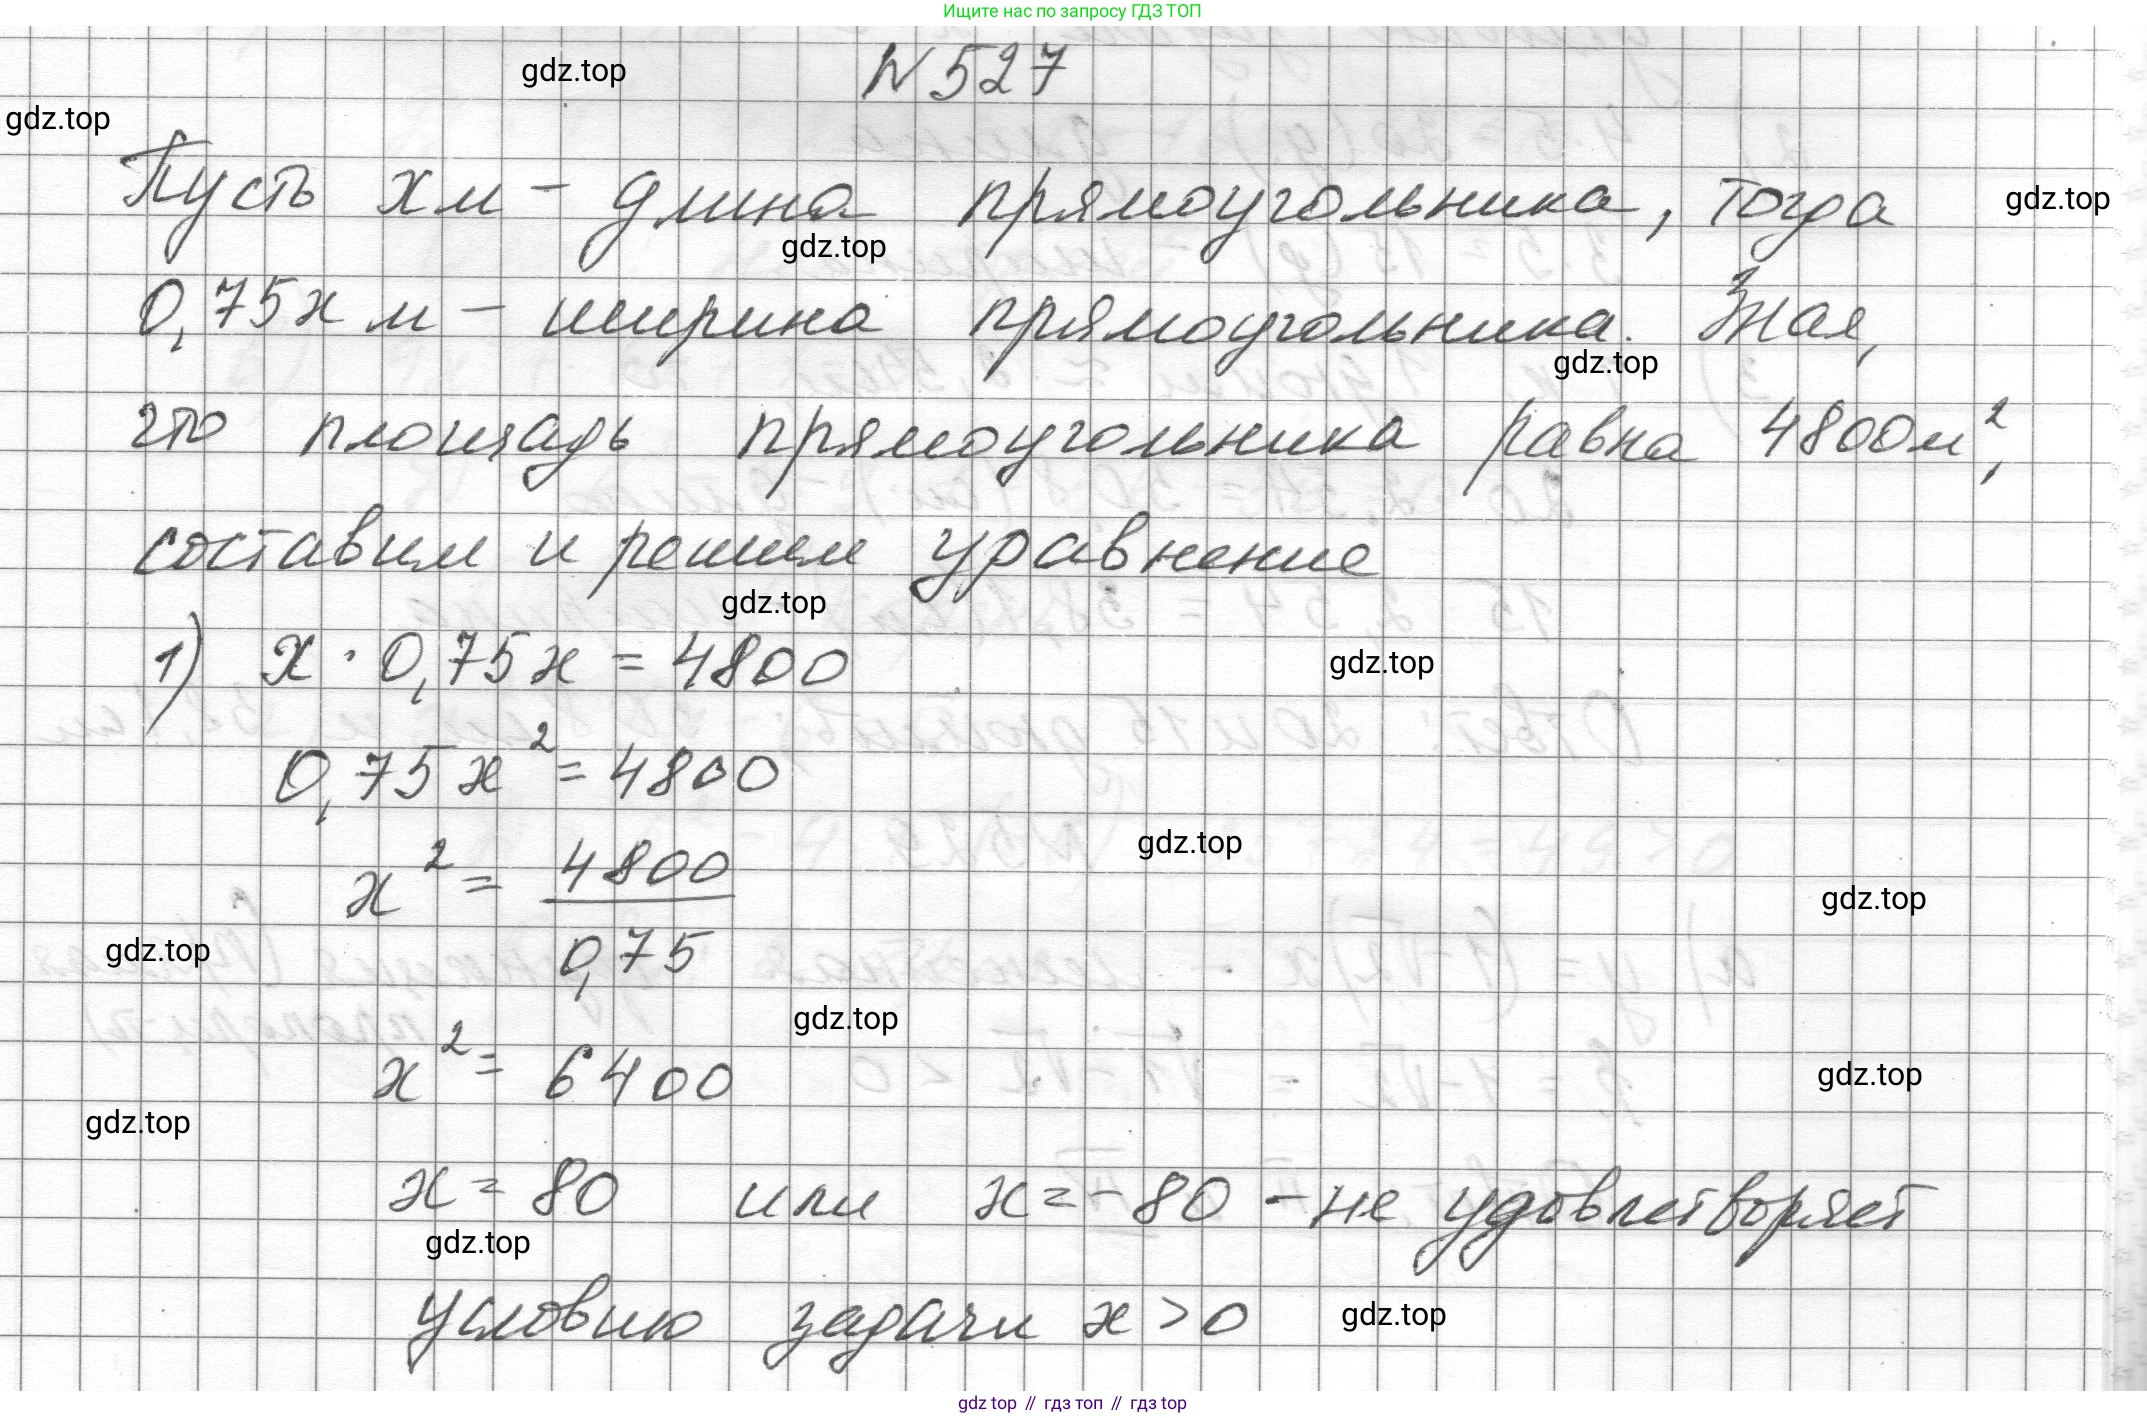 Ищите нас по запросу ГДЗ ТОП
N 527
gdz.top
gdz.top
Пусть х м - длина прямоугольника, тогда
gdz.top
gdz.top
0,75х м - ширина прямоугольника. Зная,
gdz.top
что площадь прямоугольника равна 4800м²,
составим и решим уравнение
gdz.top
1) х · 0,75х = 4800
gdz.top
0,75х² = 4800
gdz.top
х² = 4800
gdz.top
0,75
gdz.top
gdz.top
х² = 6400
gdz.top
gdz.top
х = 80 или х = -80 - не удовлетворяет
gdz.top
условию задачи х > 0
gdz.top
gdz top // гдз топ // гдз top